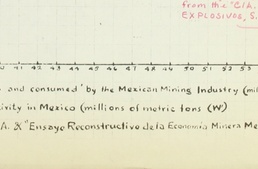 from the "CIA.
EXPLOSIVOS, S.
41 42 43 44 45 46 47 48 49 50 51 52 53
and consumed by the Mexican Mining Industry (mil
ivity in Mexico (millions of metric tons (W)
A. & "Ensayo Reconstructivo de la Economia Minera Me